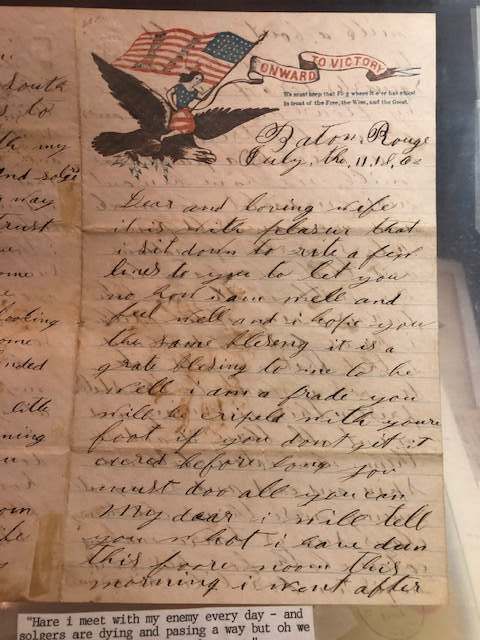 South
to
my
way
Trust
ome
ooting
ome
nded
little
ning
ONWARD TO VICTORY
We must keep that Flag where it e'er has stood
In front of the Free, the Wise, and the Good.
Baton Rouge
July, the, 11, 18,
Dear and loving wife
it is with plasur that
i sit down to rite a few
lines to you to let you
no how i am well and
feel well and i hope you
the same blesing it is a
grate blesing to me to be
well i am a frade you
will be cripeld with youre
foot if you dont git it
cured before long you
must doo all you can
My dear i will tell
you what i have dun
this fore noon this
morning i went after
"Hare i meet with my enemy every day - and
solgers are dying and pasing a way but oh we